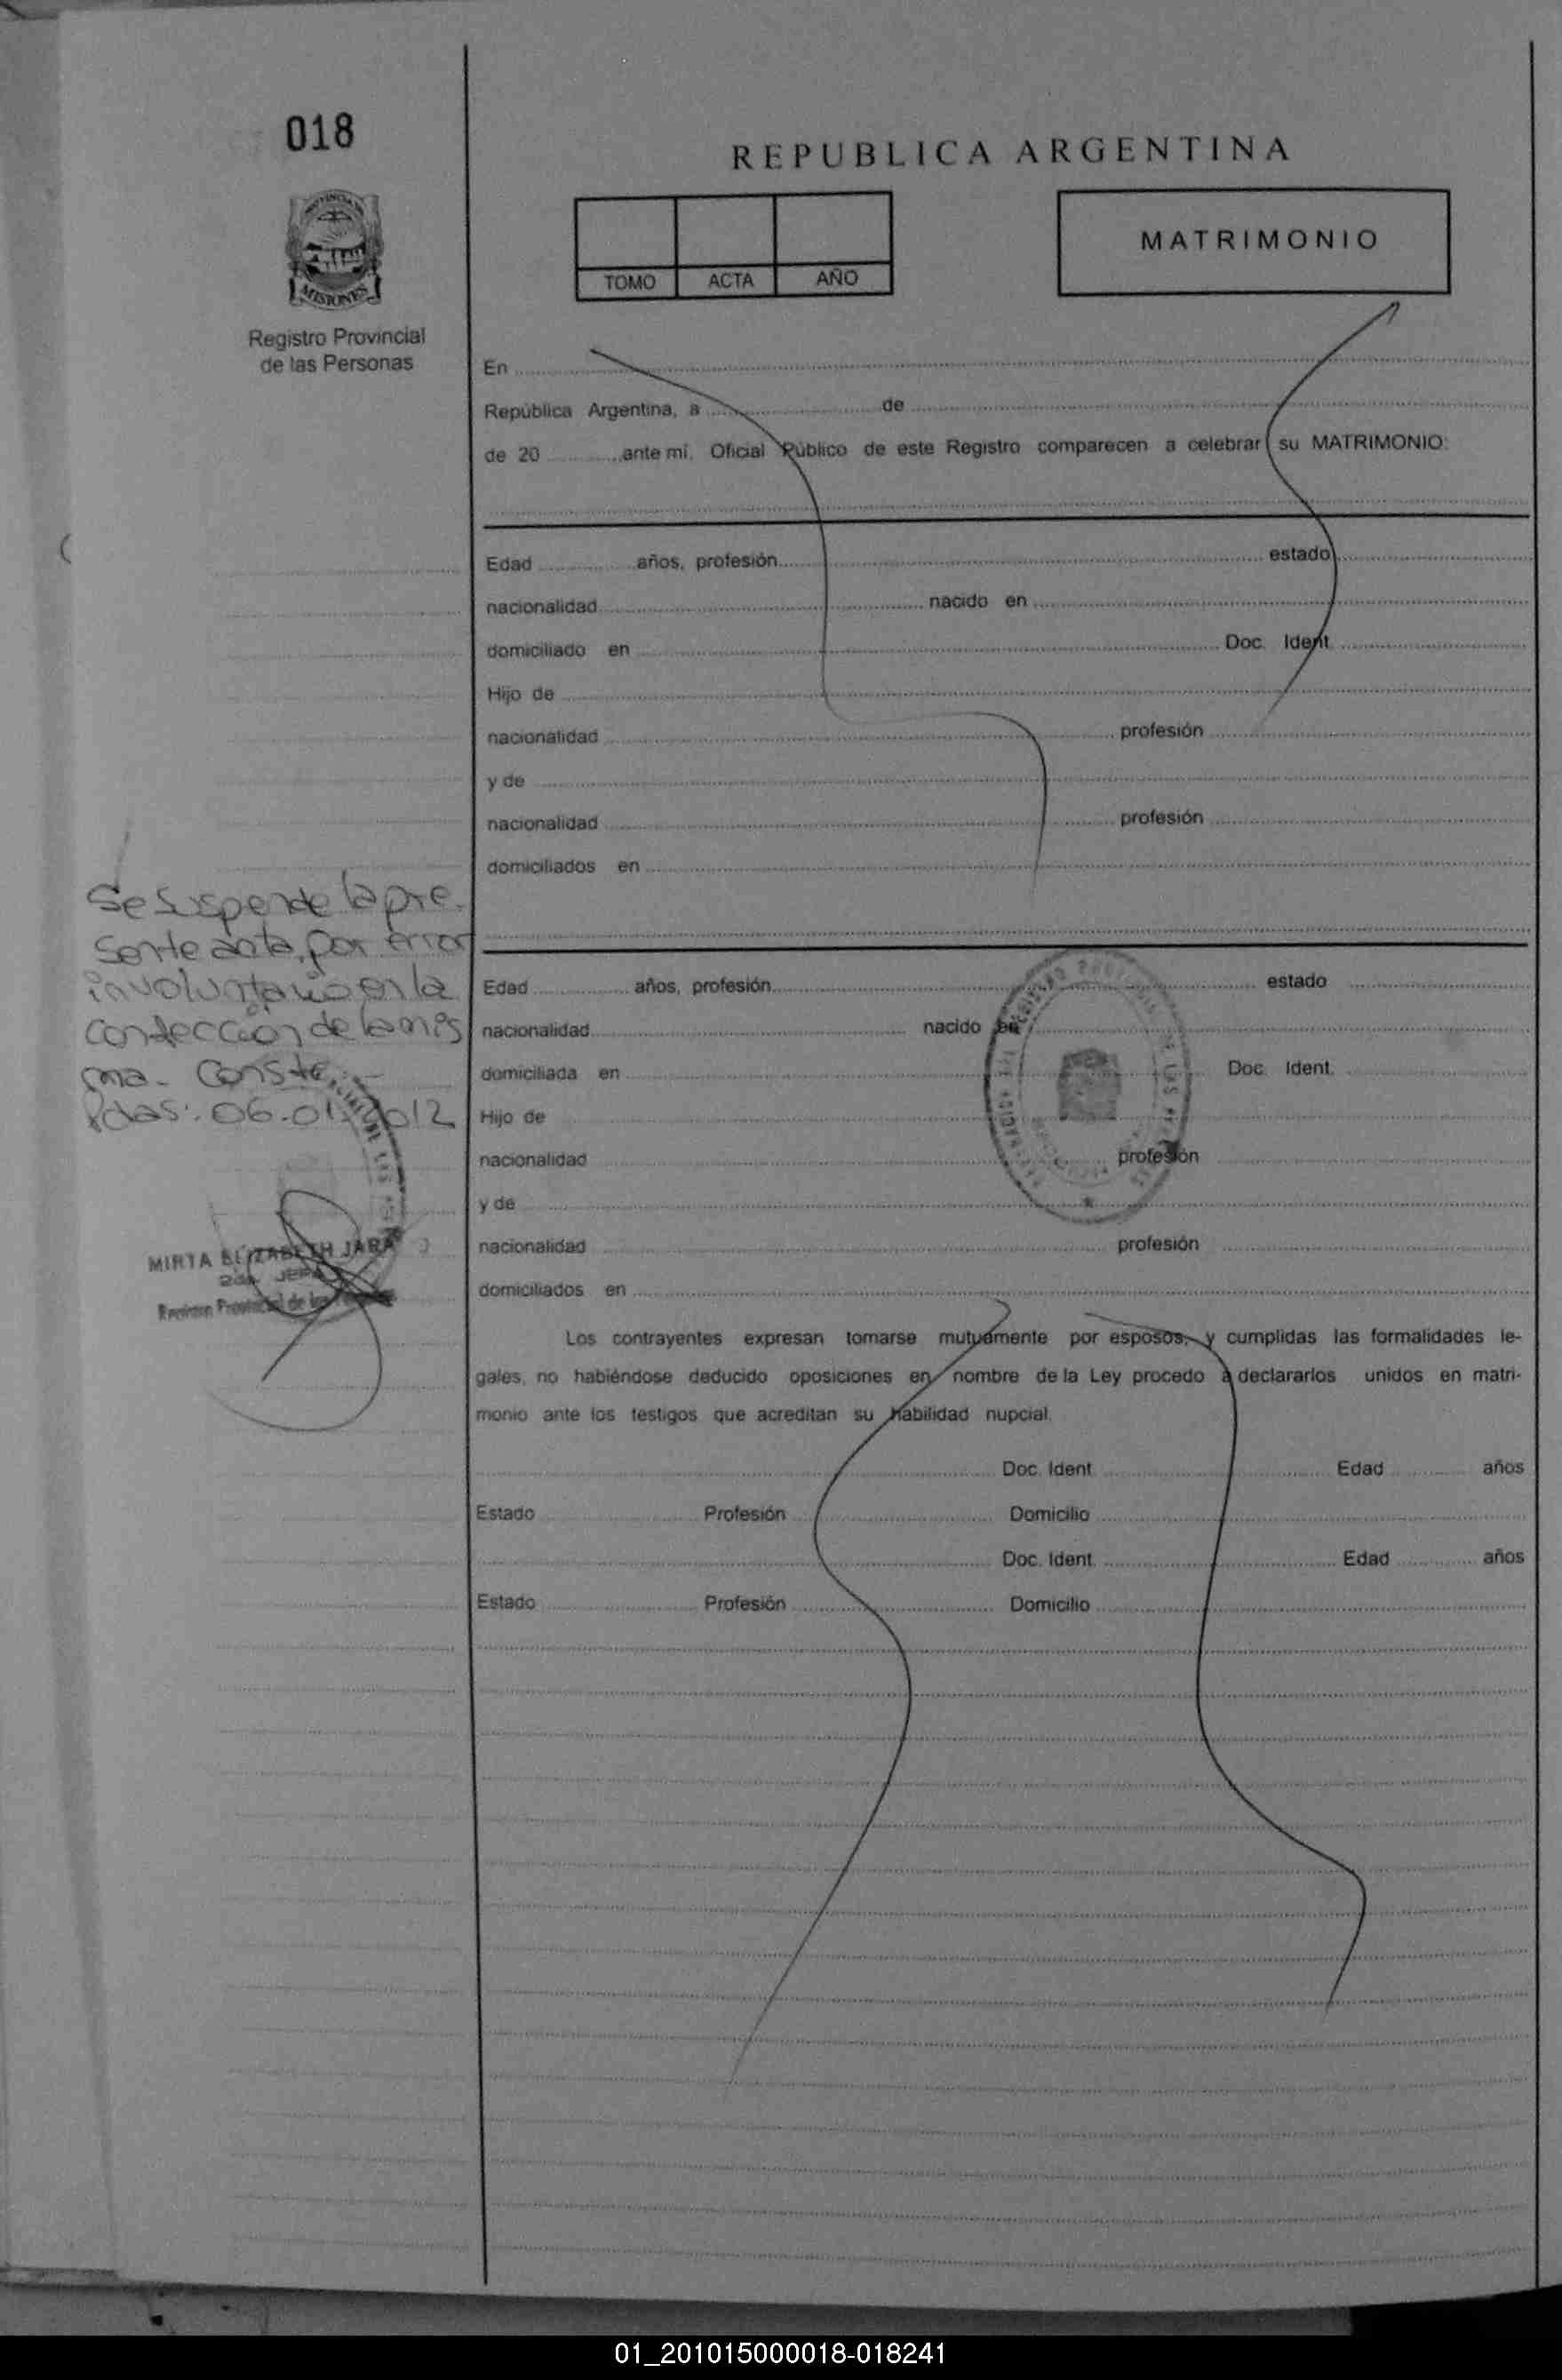 018
REPUBLICA ARGENTINA
MATRIMONIO
TOMO ACTA AÑO
MISIONES
Registro Provincial
de las Personas
En
República Argentina, a de
de 20 ante mí, Oficial Público de este Registro comparecen a celebrar su MATRIMONIO:
Edad años, profesión estado
nacionalidad nacido en
domiciliado en Doc. Ident.
Hijo de
nacionalidad profesión
y de
nacionalidad profesión
domiciliados en
Se suspende la pre-
sente acta, por error
involuntario en la
confección de la mis
ma. Conste.-
Pdas: 06-01-2012
MIRTA ELIZABETH JARA
2da. JEFA
Registro Provincial de las
Edad años, profesión estado
nacionalidad nacido en
domiciliada en Doc. Ident.
Hijo de
nacionalidad profesión
y de
nacionalidad profesión
domiciliados en
Los contrayentes expresan tomarse mutuamente por esposos, y cumplidas las formalidades le-
gales, no habiéndose deducido oposiciones en nombre de la Ley procedo a declararlos unidos en matri-
monio ante los testigos que acreditan su habilidad nupcial.
Doc. Ident. Edad años
Estado Profesión Domicilio
Doc. Ident. Edad años
Estado Profesión Domicilio
01_201015000018-018241